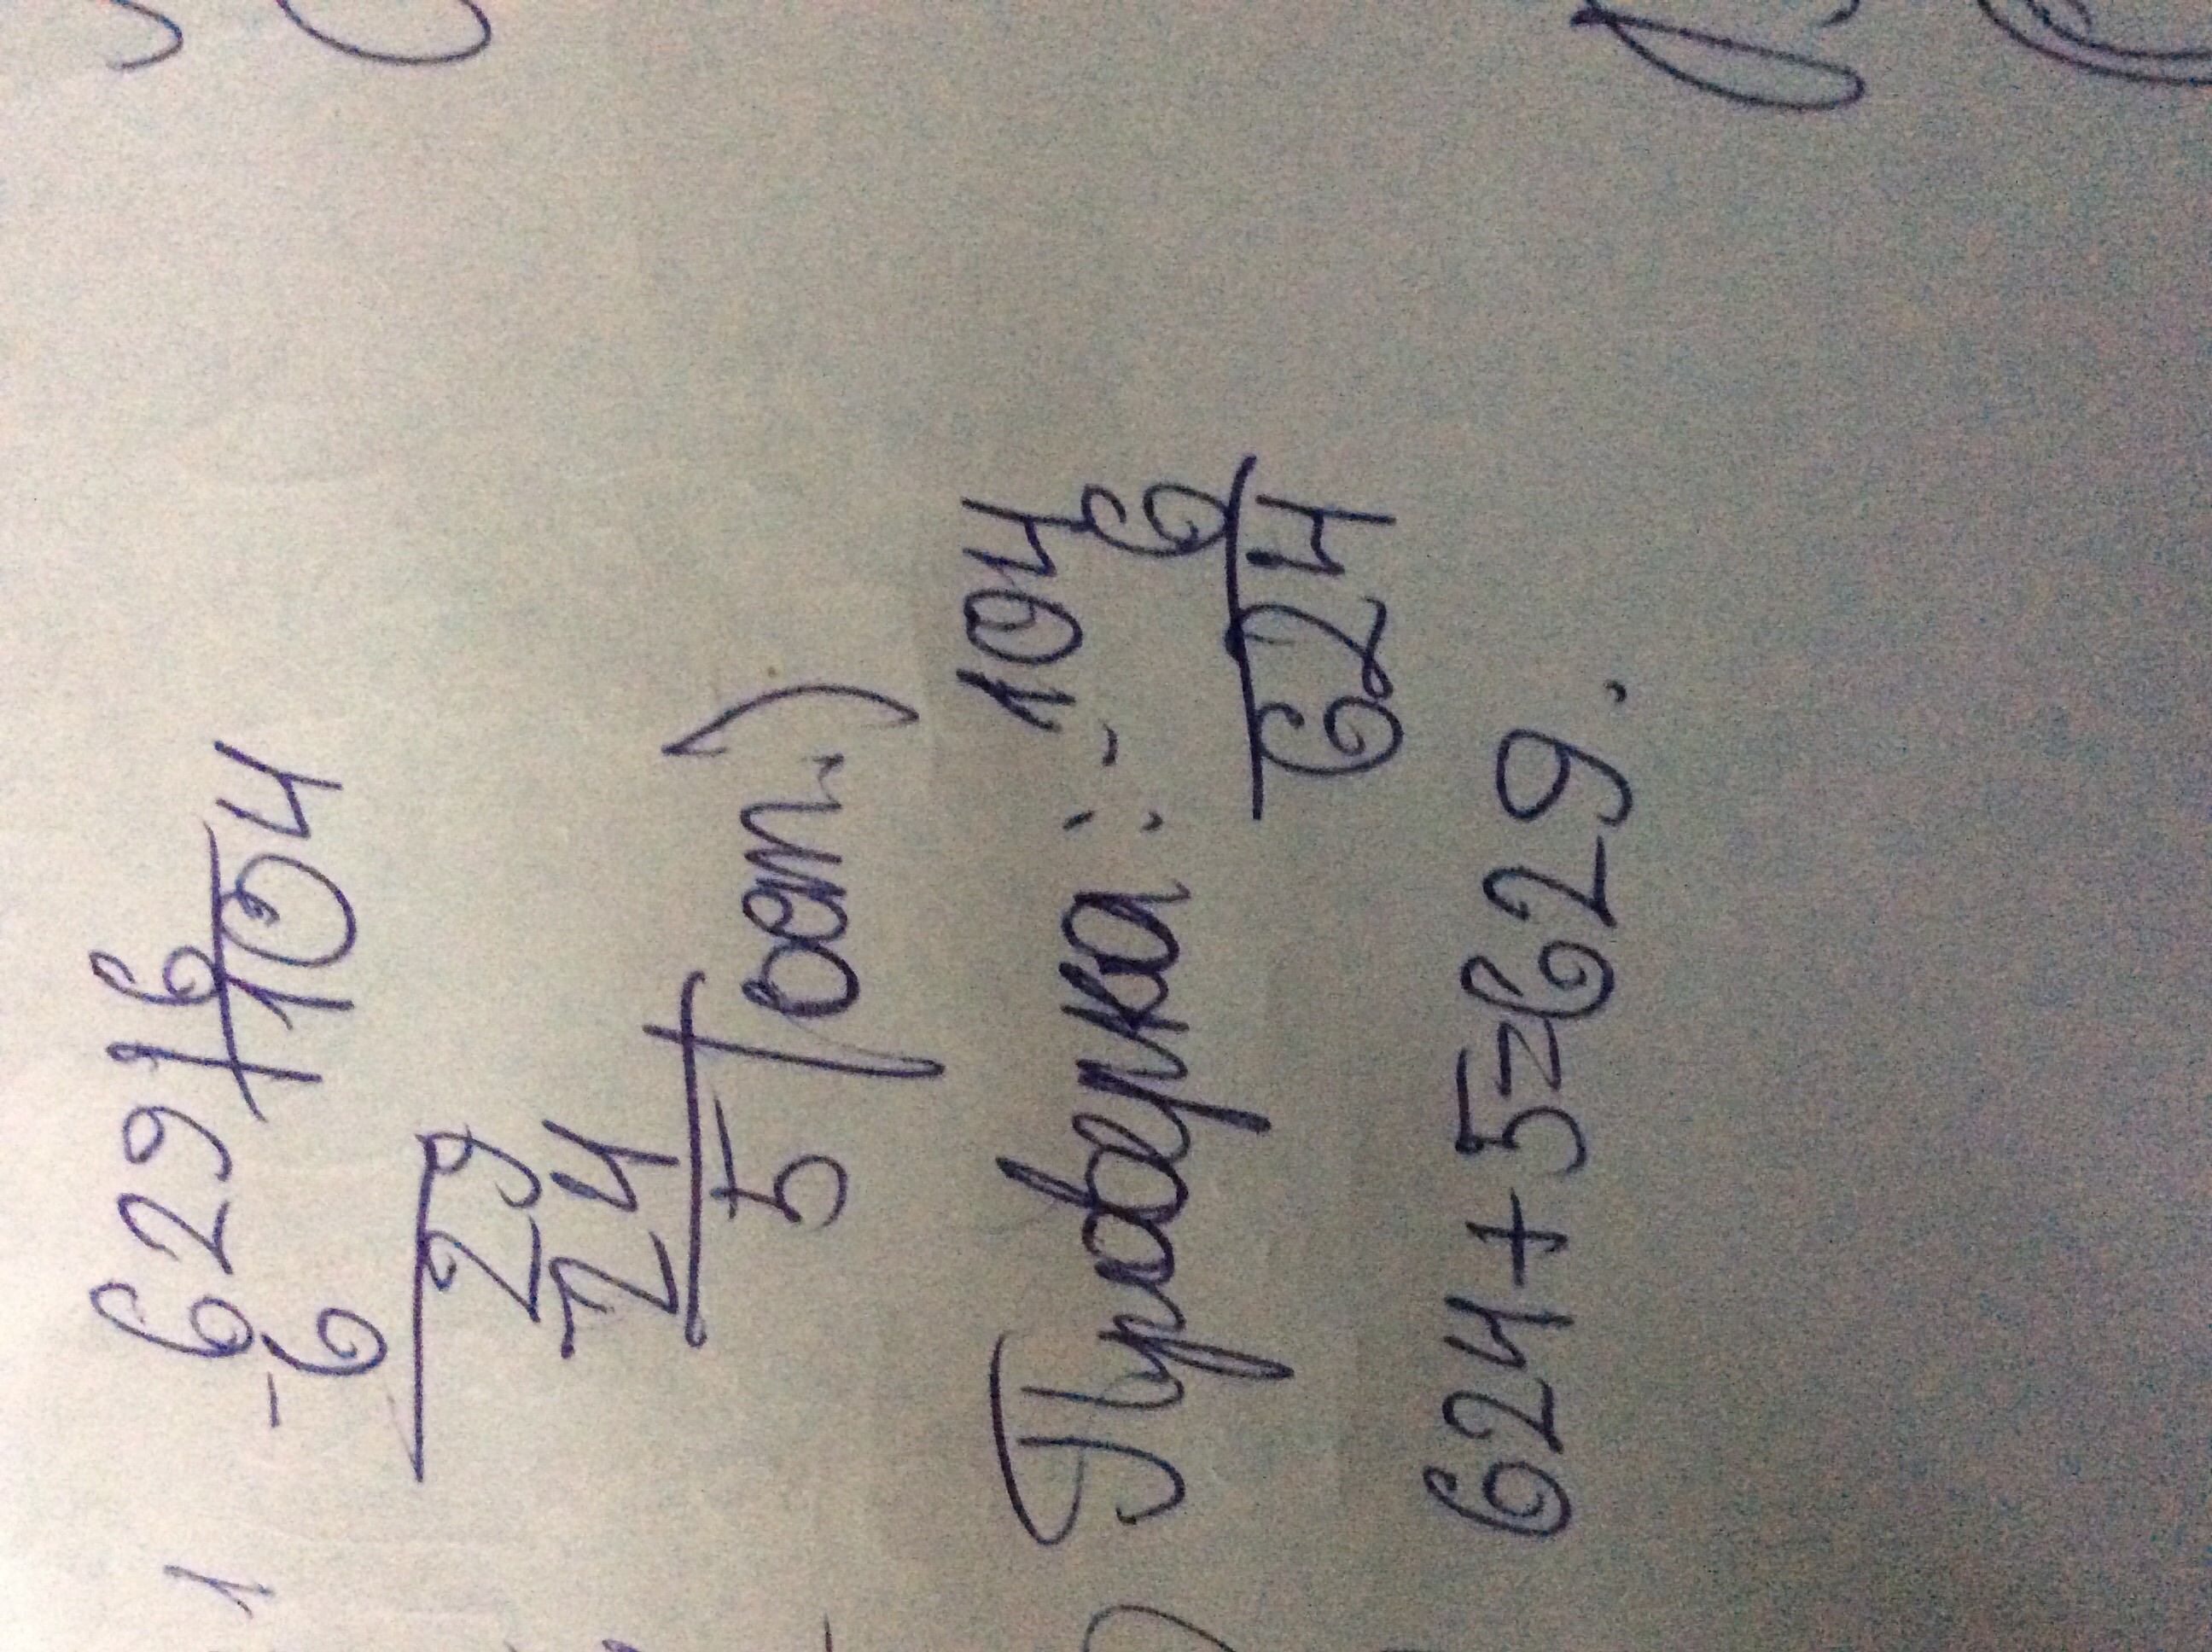 629 | 6
-6 104
29
24
5 (ост.)
Проверка: 104
6
624
624+5=629.